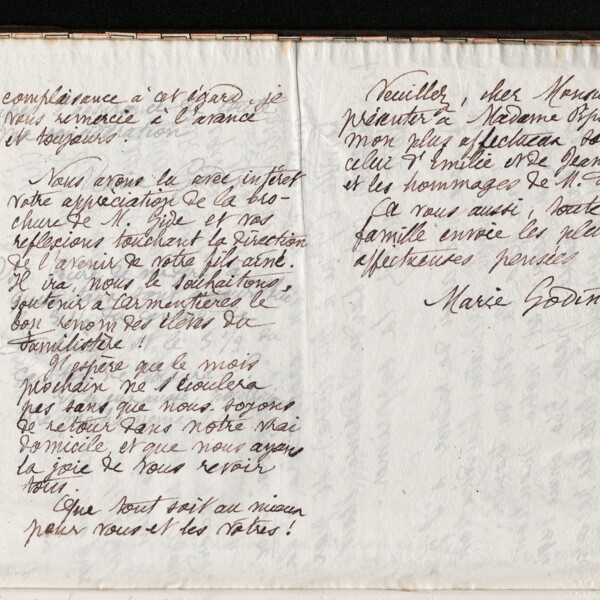 complaisance à cet égard, je
vous remercie à l'avance
et toujours.
Nous avons lu avec intérêt
votre appréciation de la bro-
chure de M. Gide et vos
réflexions touchant la direction
de l'avenir de votre fils aîné.
Il ira, nous le souhaitons,
soutenir à Armentières le
bon renom des élèves du
Familistère !
J'espère que le mois
prochain ne s'écoulera
pas sans que nous soyons
de retour dans notre vrai
domicile et que nous ayons
la joie de vous revoir
tous.
Que tout soit au mieux
pour vous et les vôtres !
Veuillez, cher Monsieur
présenter à Madame
mon plus affectueux
celui d'Emilie et de Jeanne
et les hommages de M.
Et à vous aussi, toute
famille envoie les plus
affectueuses pensées
Marie Godin